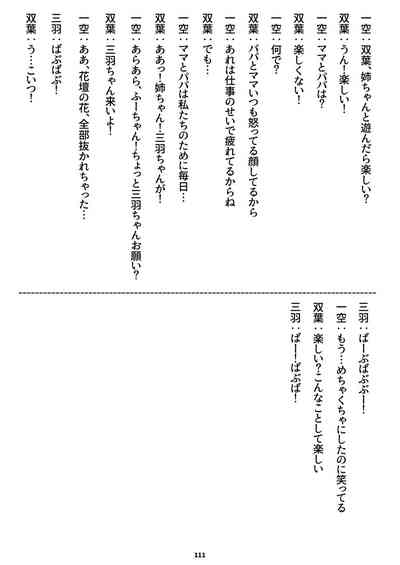 一空：双葉、姉ちゃんと遊んだら楽しい？
双葉：うん！楽しい！
一空：ママとパパは？
双葉：楽しくない！
一空：何で？
双葉：パパとママいつも怒ってる顔してるから
一空：あれは仕事のせいで疲れてるからね
双葉：でも…
一空：ママとパパは私たちのために毎日…
双葉：ああっ！姉ちゃん！三羽ちゃんが！
一空：あらあら、ふーちゃん！ちょっと三羽ちゃんお願い？
双葉：三羽ちゃん来いよ！
一空：ああ、花壇の花、全部抜かれちゃった…
三羽：ばぶばぶ！
双葉：う…こいつ！
三羽：ばーぶばぶぶー！
一空：もう…めちゃくちゃにしたのに笑ってる
双葉：楽しい？こんなことして楽しい
三羽：ばー！ばぶば！
111